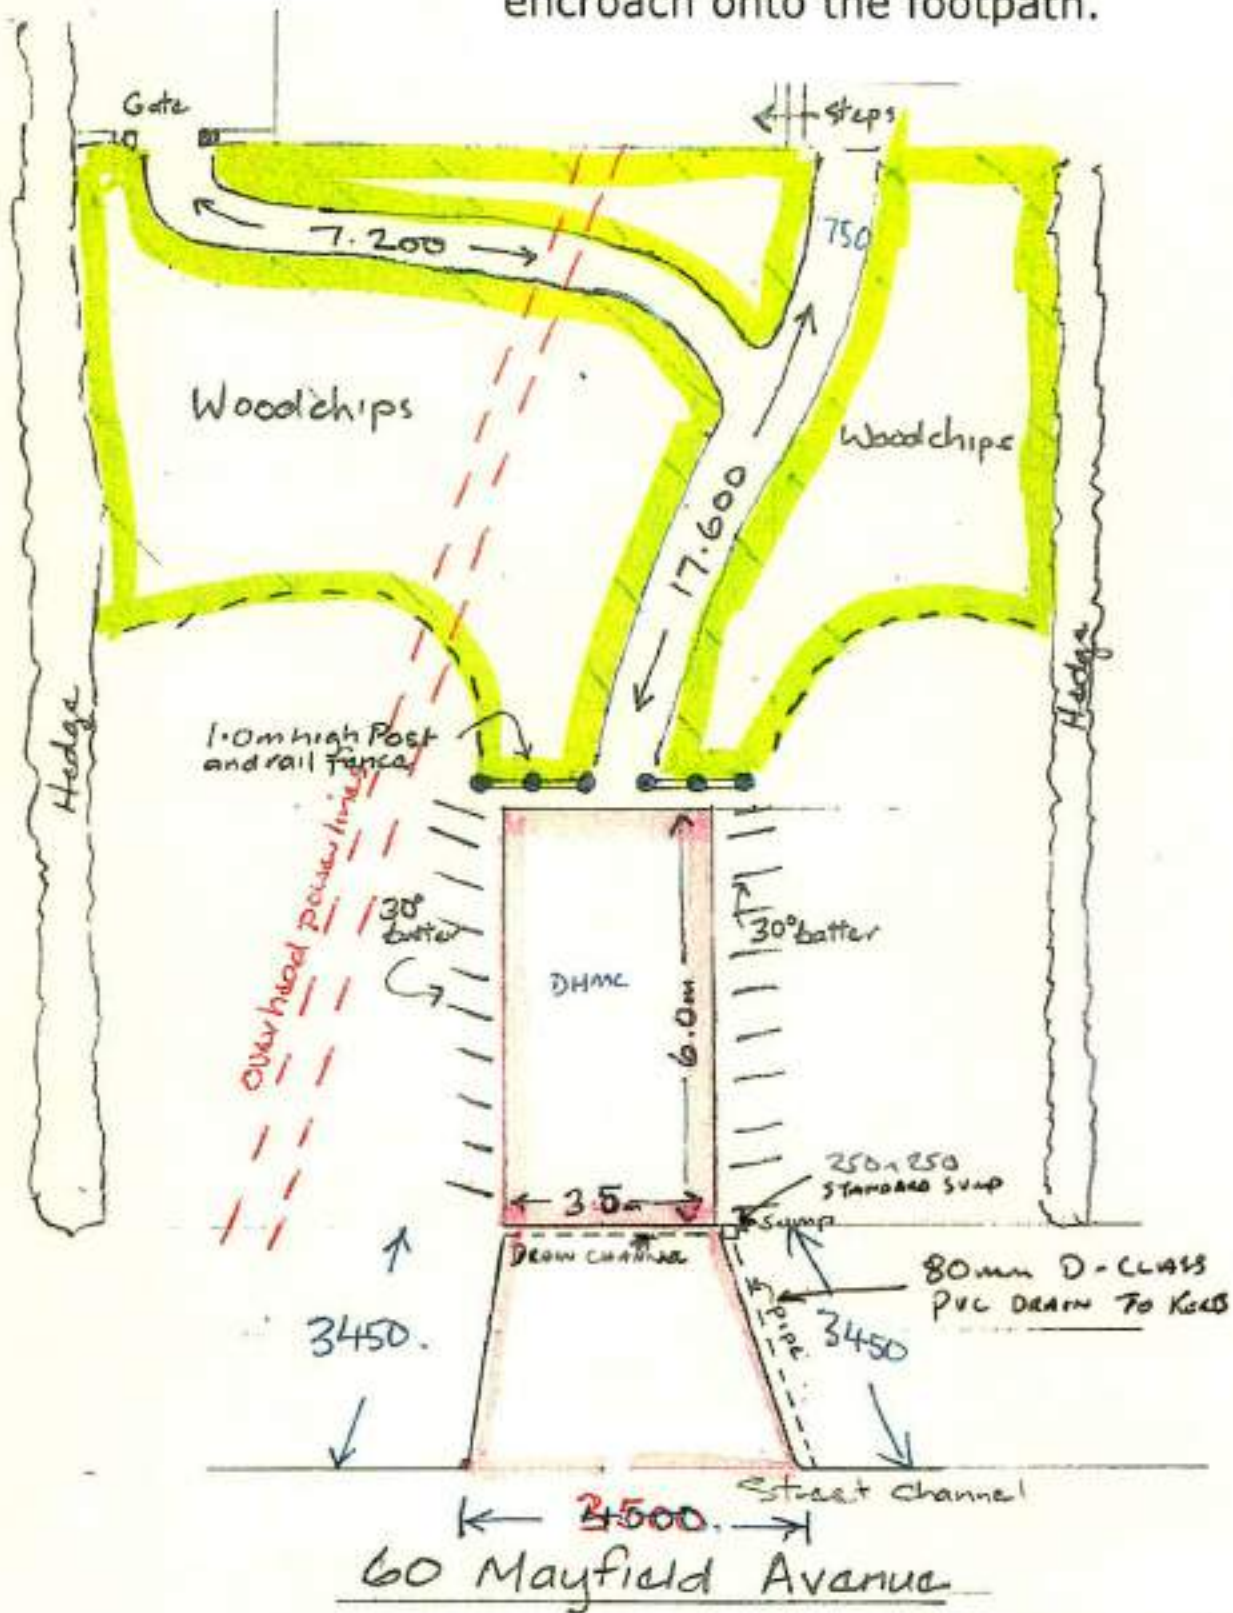 encroach onto the footpath.
Gate
Steps
7.200
750
Woodchips
Woodchips
17.600
Hedge
Hedge
1.0m high Post
and rail Fence
Overhead power lines
30°
batter
30° batter
DHMC
6.0m
250 x 250
STANDARD SUMP
3.5m
Sump
DRAIN CHANNEL
80mm D-CLASS
PVC DRAIN TO KERB
pipe
3450.
3450
Street Channel
60 Mayfield Avenue